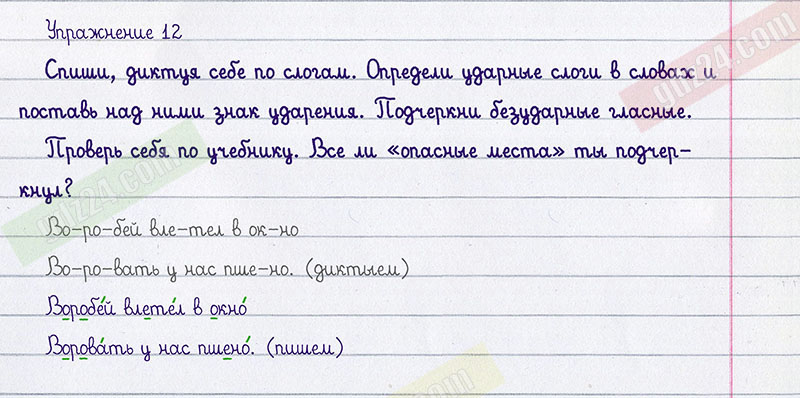 Упражнение 12
Спиши, диктуя себе по слогам. Определи ударные слоги в словах и
поставь над ними знак ударения. Подчеркни безударные гласные.
Проверь себя по учебнику. Все ли «опасные места» ты подчер-
кнул?
Во-ро-бей вле-тел в ок-но
Во-ро-вать у нас пше-но. (диктыем)
Воробе́й влете́л в окно́
Ворова́ть у нас пшено́. (пишем)
gdz24.com
gdz24.com
gdz24.com